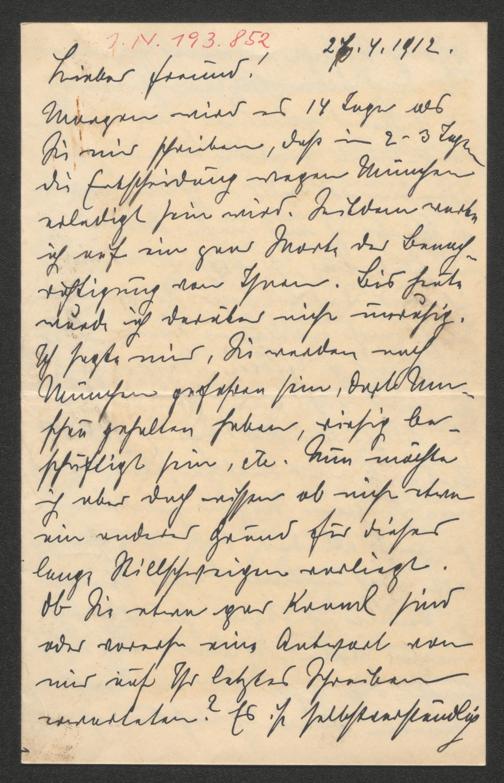 J.N. 193.852
27.4.1912.
Lieber Freund!
Morgen wird es 14 Tage als
Sie mir schrieben, daß in 2-3 Tagen
die Entscheidung wegen München
erledigt sein wird. Seitdem warte
ich auf ein paar Worte der Benach-
richtigung von Ihnen. Bis heute
wurde ich darüber nicht unruhig.
Ich sagte mir, Sie werden nach
München gefahren sein, dort
gehalten haben, riesig be-
schäftigt sein, etc. Nun möchte
ich aber doch wissen ob nicht etwa
ein anderer Grund für dieses
lange Stillschweigen vorliegt.
Ob Sie etwa gar krank sind
oder vorerst eine Antwort von
mir auf Ihr letztes Schreiben
erwarteten? Es ist selbstverständlich